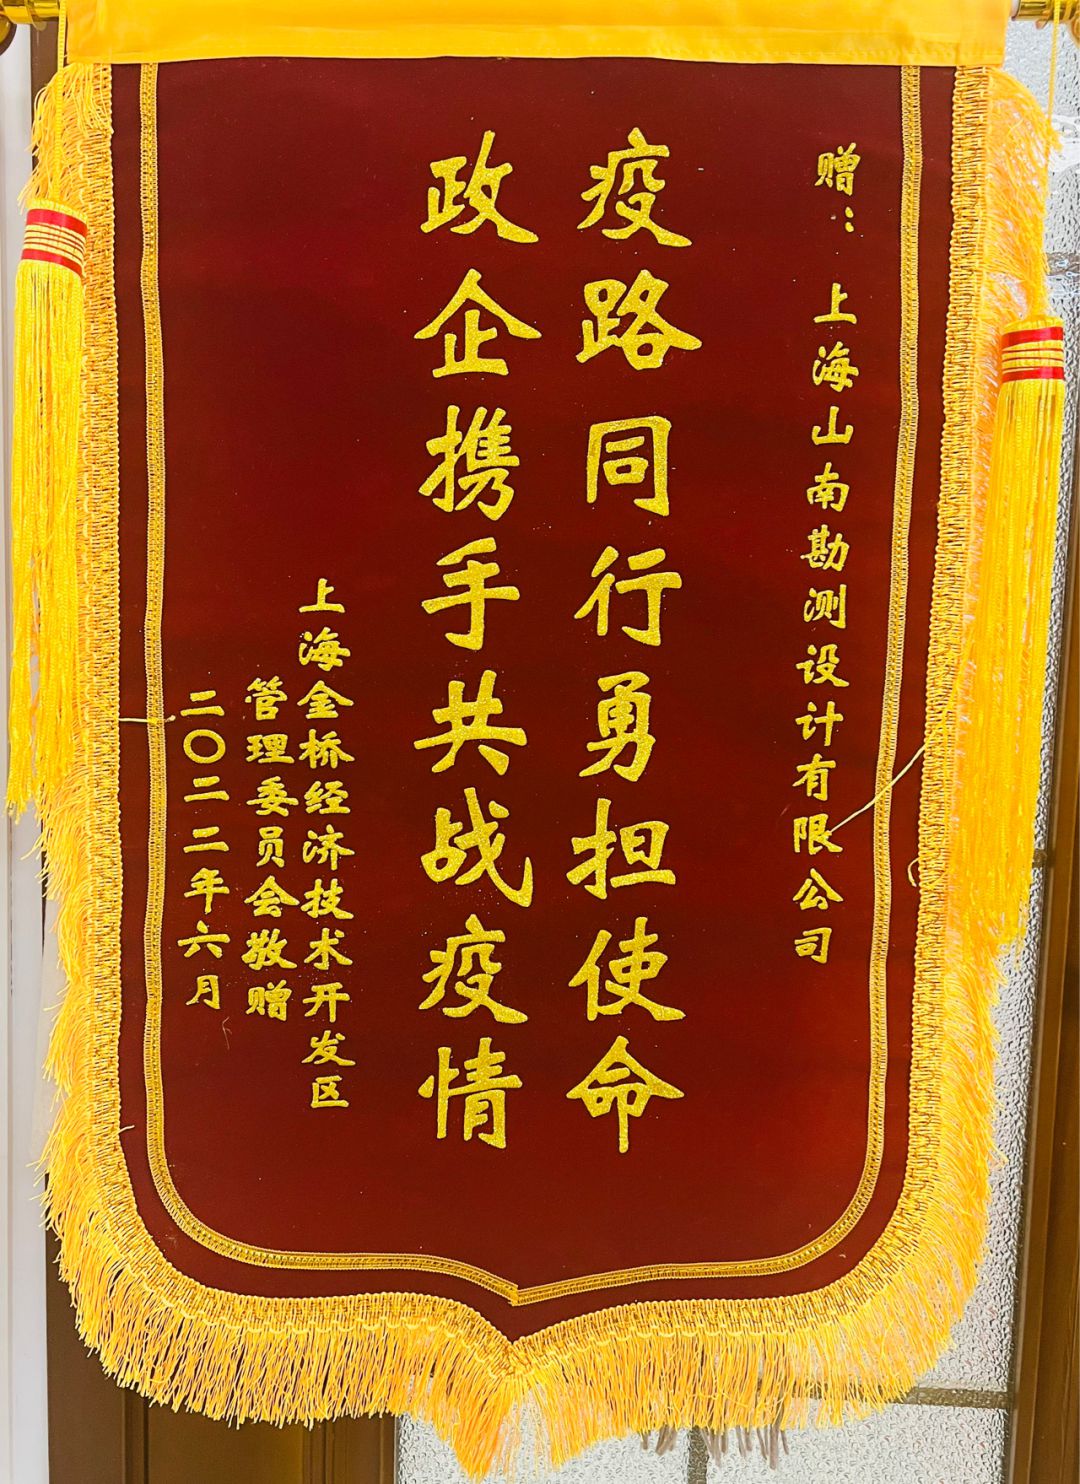 赠：上海山南勘测设计有限公司
疫路同行勇担使命
政企携手共战疫情
上海金桥经济技术开发区
管理委员会敬赠
二〇二二年六月